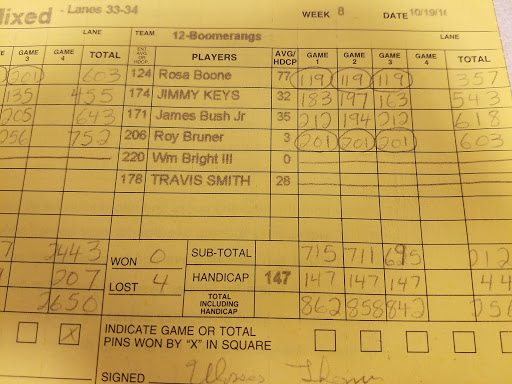 Mixed - Lanes 33-34 WEEK 8 DATE 10/19/1
LANE TEAM 12-Boomerangs LANE
GAME 3 GAME 4 TOTAL ENT. AVG. OR HDCP. PLAYERS AVG/HDCP GAME 1 GAME 2 GAME 3 GAME 4 TOTAL
201 603 124 Rosa Boone 77 119 119 119 357
135 455 174 JIMMY KEYS 32 183 197 163 543
205 643 171 James Bush Jr 35 212 194 212 618
256 752 206 Roy Bruner 3 201 201 201 603
220 Wm Bright III 0
178 TRAVIS SMITH 28
7 2443 WON 0 SUB-TOTAL 715 711 695 212
207 LOST 4 HANDICAP 147 147 147 147 44
2650 TOTAL INCLUDING HANDICAP 862 858 842 256
X INDICATE GAME OR TOTAL
PINS WON BY "X" IN SQUARE
SIGNED